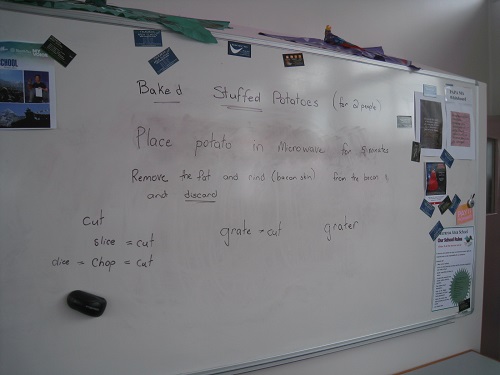 Baked Stuffed Potatoes (for 2 people)
Place potato in Microwave for 5 minutes
Remove the fat and rind (bacon skin) from the bacon
and discard
cut
slice = cut
dice = chop = cut
grate = cut
grater
SCHOOL
Our School Rules